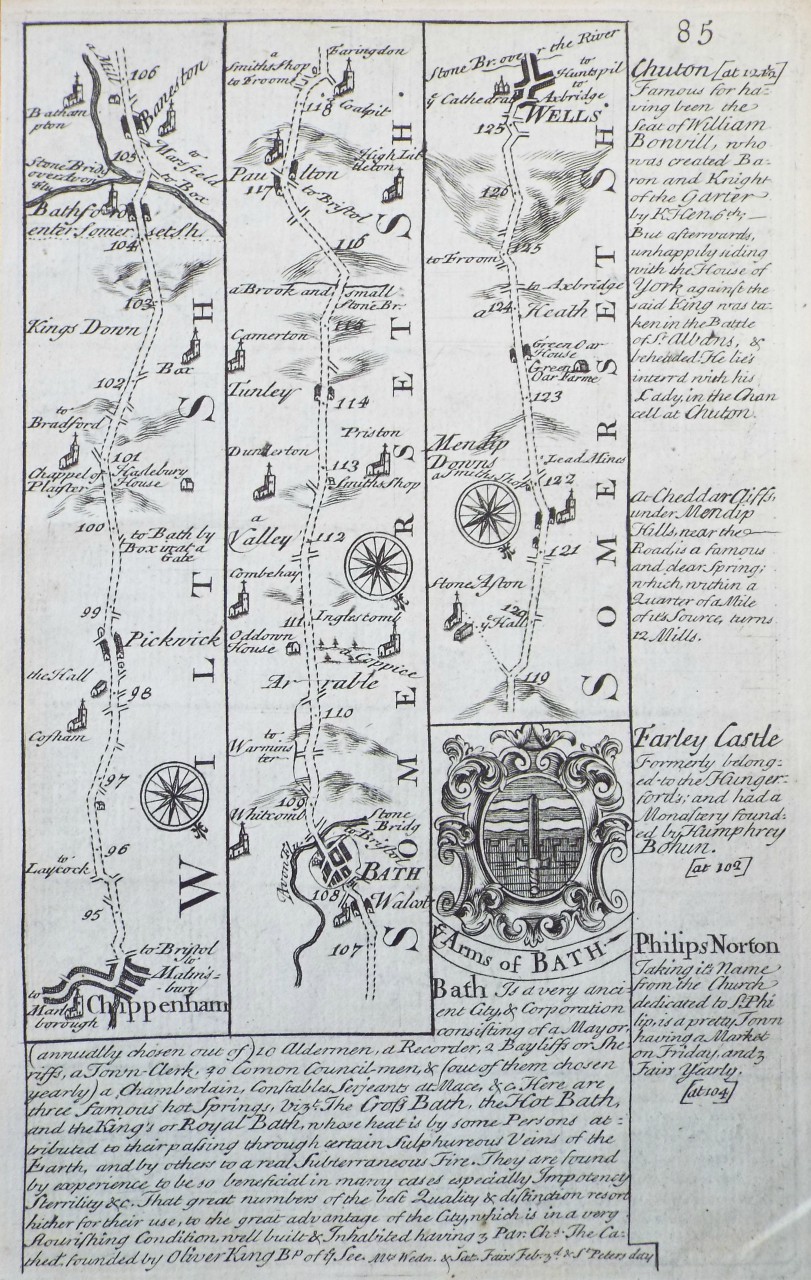 85
a Mill
106
Baneston
Batham
pton
105
to
Marsfield
to Box
Stone Bridg
over Avon
Flu
Bathford
enter Somer setsh
104
103
Kings Down
Box
102
to
Bradford
101
Chappel of
Plaister
Haslebury
House
100
to Bath by
Box in at a
Gate
99
Pickwick
the Hall
98
Cosham
97
96
to
Laycock
95
to Bristol
to
Malms-
bury
to
Marl
borough
Chippenham
WILTSH
a
Smiths Shop
to Froom
Faringdon
118
Coalpit
Paulton
117
High Lit
tleton
to Bristol
116
a Brook and small
Stone Br.
115
Camerton
Tunley
114
Priston
Dunkerton
113
Smiths Shop
a
Valley
112
Combehay
111
Inglescomb
Oddown
House
a Coppice
Arrable
110
to
Warmins
ter
109
Whitcomb
Stone
Bridg
to Bristol
Avon R
BATH
108
Walcot
107
SOMERSETSH.
Stone Br. over the River
to
Huntspil
to
Axbridge
ye Cathedral
WELLS
125
126
125
to Froom
to Axbridge
124
a Heath
Green Oar
House
Green
Oar Farme
123
Mendip
Downs
a Smiths Shop
Lead Mines
122
121
Stone Aston
120
ye Hall
119
SOMERSETSH
ye Arms of BATH
Chuton [at 124½]
Famous for ha-
ving been the
Seat of William
Bonvill, who
was created Ba-
ron and Knight
of the Garter
by K. Hen. 6th;
But afterwards,
unhappily siding
with the House of
York against the
said King was ta-
ken in the Battle
of St Albans, &
beheaded. He lies
interr'd with his
Lady, in the Chan
cell at Chuton.
At Cheddar Cliffs,
under Mendip
Hills, near the
Road, is a famous
and clear Spring;
which within a
Quarter of a Mile
of its Source, turns
12 Mills.
Farley Castle
Formerly belong-
ed to the Hunger-
fords; and had a
Monastery found-
ed by Humphrey
Bohun.
[at 102]
Philips Norton
Taking its Name
from the Church
dedicated to St Phi
lip, is a pretty Town
having a Market
on Friday, and 3
Fairs Yearly.
[at 104]
Bath Is a very anci-
ent City, & Corporation
consisting of a Mayor,
(annually chosen out of) 10 Aldermen, a Recorder, 2 Bayliffs or She-
riffs, a Town-Clerk, 20 Comon Council-men, & (out of them chosen
yearly) a Chamberlain, Constables Serjeants at Mace, &c. Here are
three Famous hot Springs, vizt. The Cross Bath, the Hot Bath,
and the King's or Royal Bath, whose heat is by some Persons at-
tributed to their passing through certain Sulphureous Veins of the
Earth, and by others to a real Subterraneous Fire. They are found
by experience to be so beneficial in many cases especially Impotency
Sterrility &c. That great numbers of the best Quality & distinction resort
hither for their use, to the great advantage of the City, which is in a very
flourishing Condition, well built & Inhabited having 3 Par. Chs. The Ca-
thed. founded by Oliver King Bp. of ye See. Mts Wedn. & Sat. Fairs Feb. 3d. & St Peters day